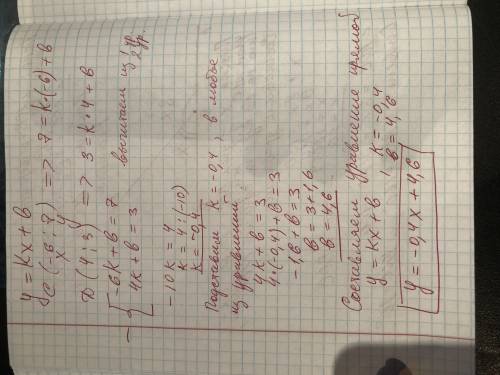 y = kx + b
C (-6 ; 7) => 7 = k·(-6) + b
x y
D (4 ; 3) => 3 = k·4 + b
- { -6k + b = 7
4k + b = 3
вычитаем из 1 ур. 2 ур.
-10k = 4
k = 4 : (-10)
k = -0,4
Подставим k = -0,4, в любое
из уравнений
4k + b = 3
4·(-0,4) + b = 3
-1,6 + b = 3
b = 3 + 1,6
b = 4,6
Составляем уравнение прямой
y = kx + b, k = -0,4
b = 4,6
y = -0,4x + 4,6